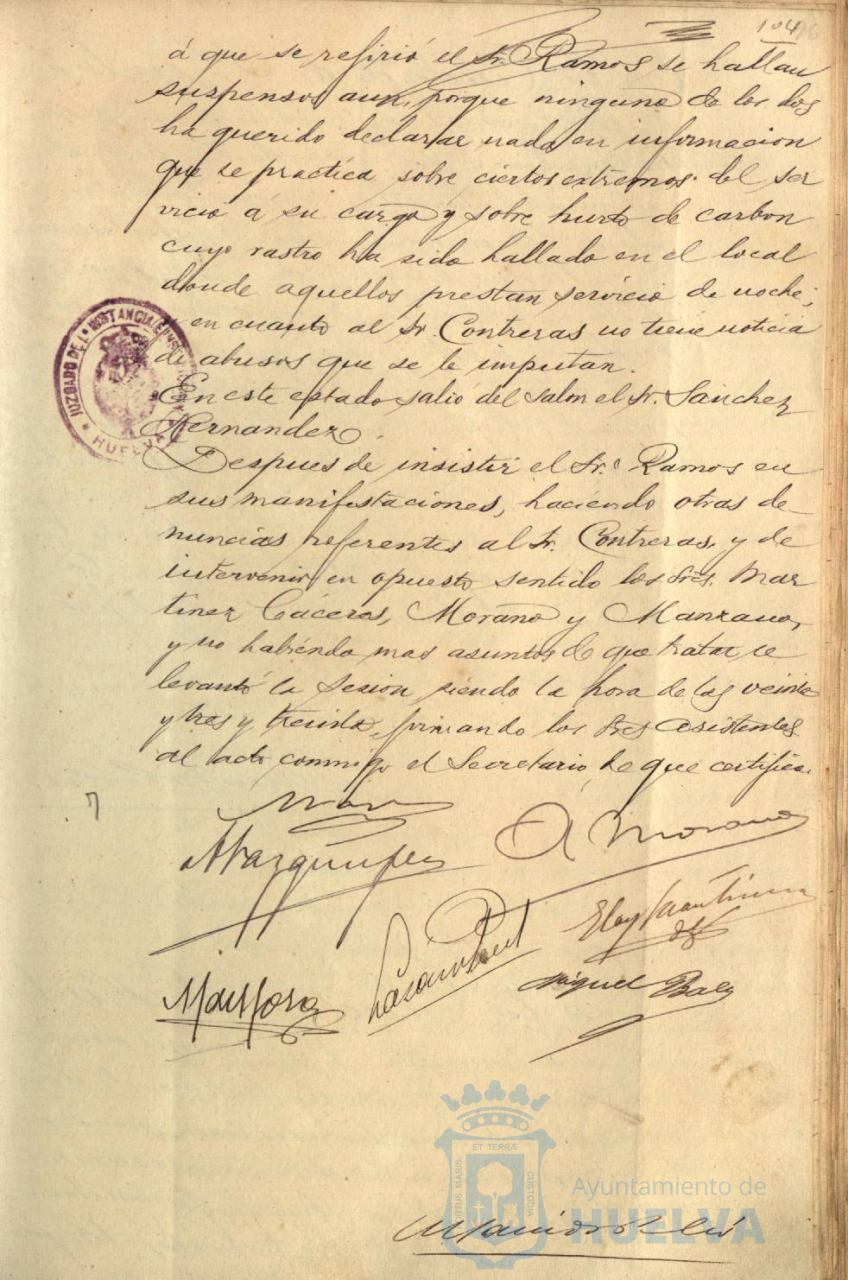 104
á que se refirió el Sr. Ramos se hallan
suspensos aun, porque ninguno de los dos
ha querido declarar nada en informacion
que se practica sobre ciertos extremos del ser
vicio á su cargo y sobre hurto de carbon
cuyo rastro ha sido hallado en el local
donde aquellos prestan servicio de noche;
y en cuanto al Sr. Contreras no tiene noticia
de abusos que se le imputan.
En este estado salió del salon el Sr. Sanchez
Hernandez.
Despues de insistir el Sr. Ramos en
sus manifestaciones, haciendo otras de-
nuncias referentes al Sr. Contreras, y de
intervenir en opuesto sentido los Sres. Mar
tinez Cáceres, Morano y Manzano,
y no habiendo mas asuntos de que tratar se
levantó la sesion siendo la hora de las veinte
y tres y treinta, firmando los Sres asistentes
al acto conmigo el Secretario, de que certifico.
JUZGADO DE 1ª INSTANCIA E INS
HUELVA
A Morano
Miguel Baez
ET TERRÆ
PORTUS MARIS
CUSTODIA
Ayuntamiento de
HUELVA